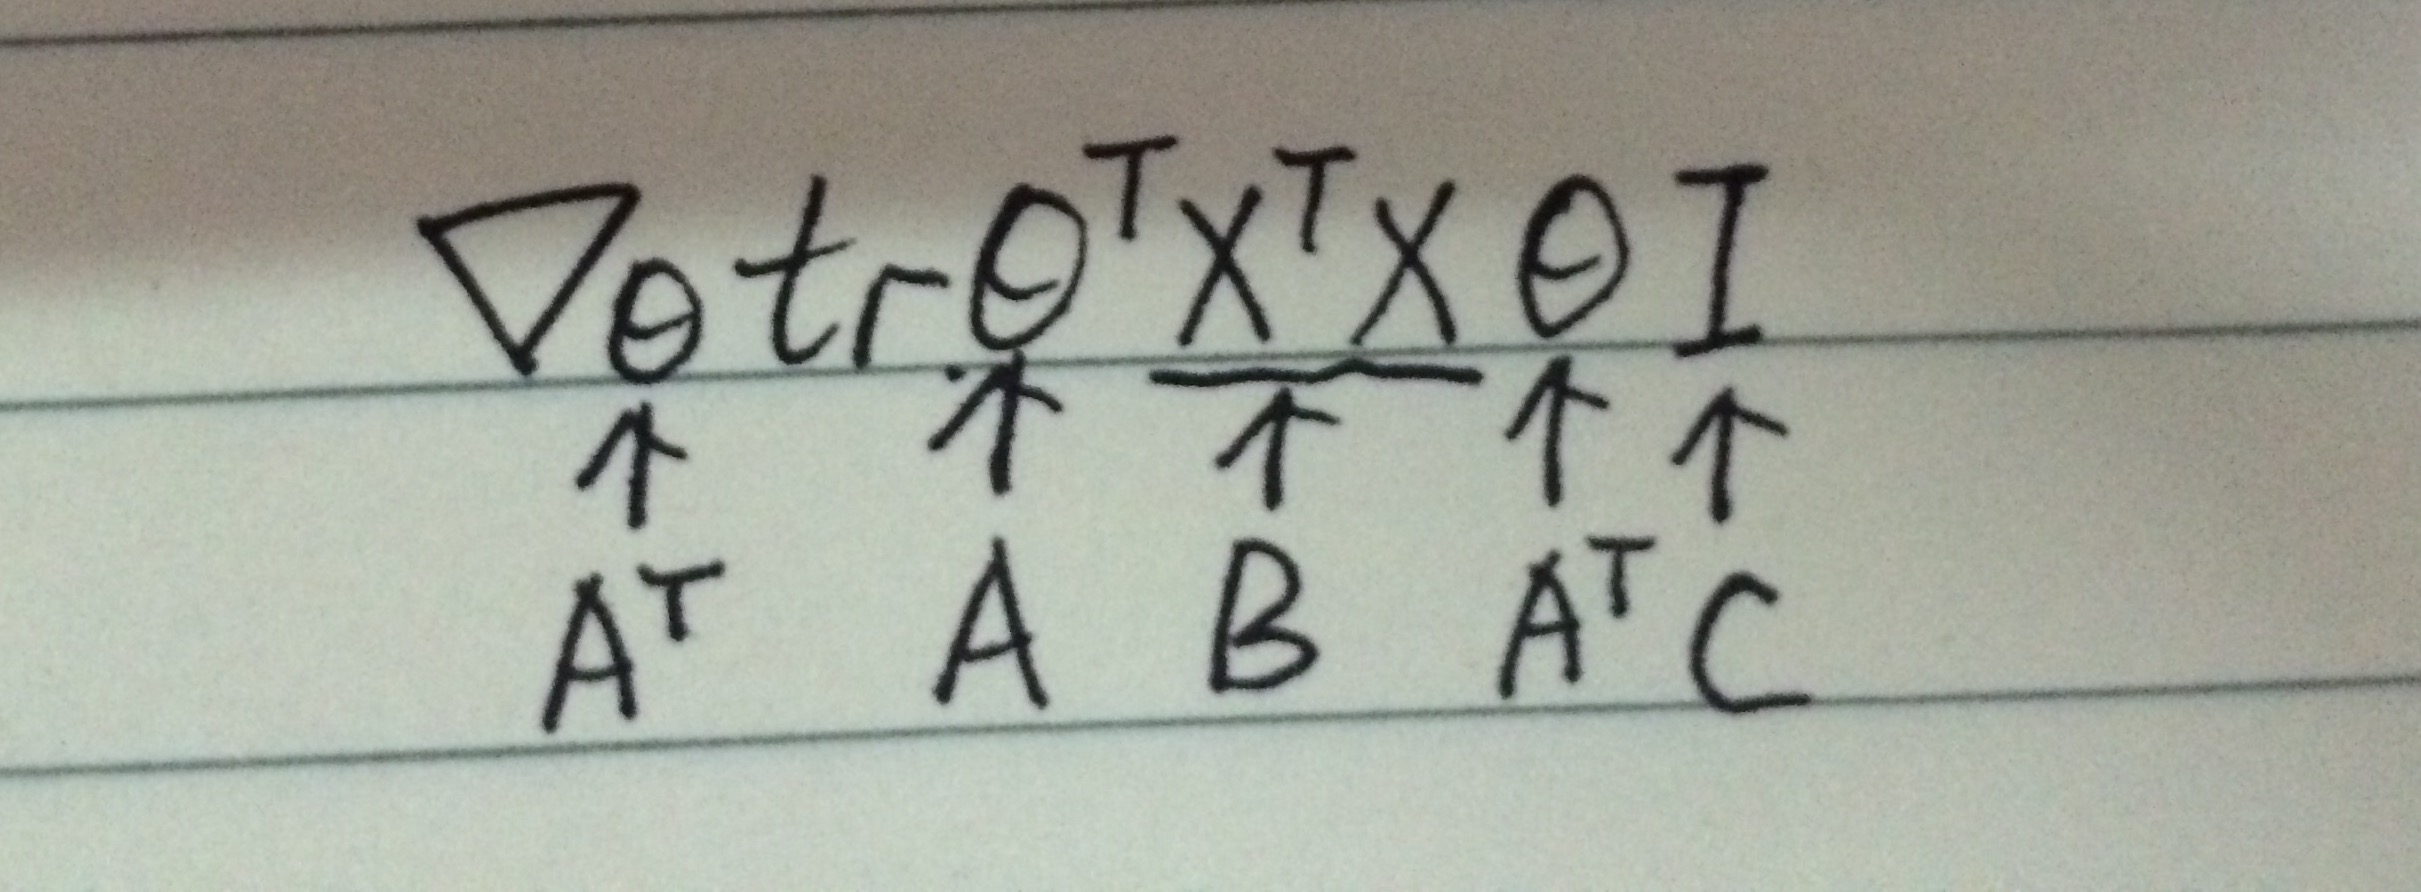 ∇θ tr θᵀXᵀXθI
↑ ↑ ↑ ↑ ↑
Aᵀ A B Aᵀ C